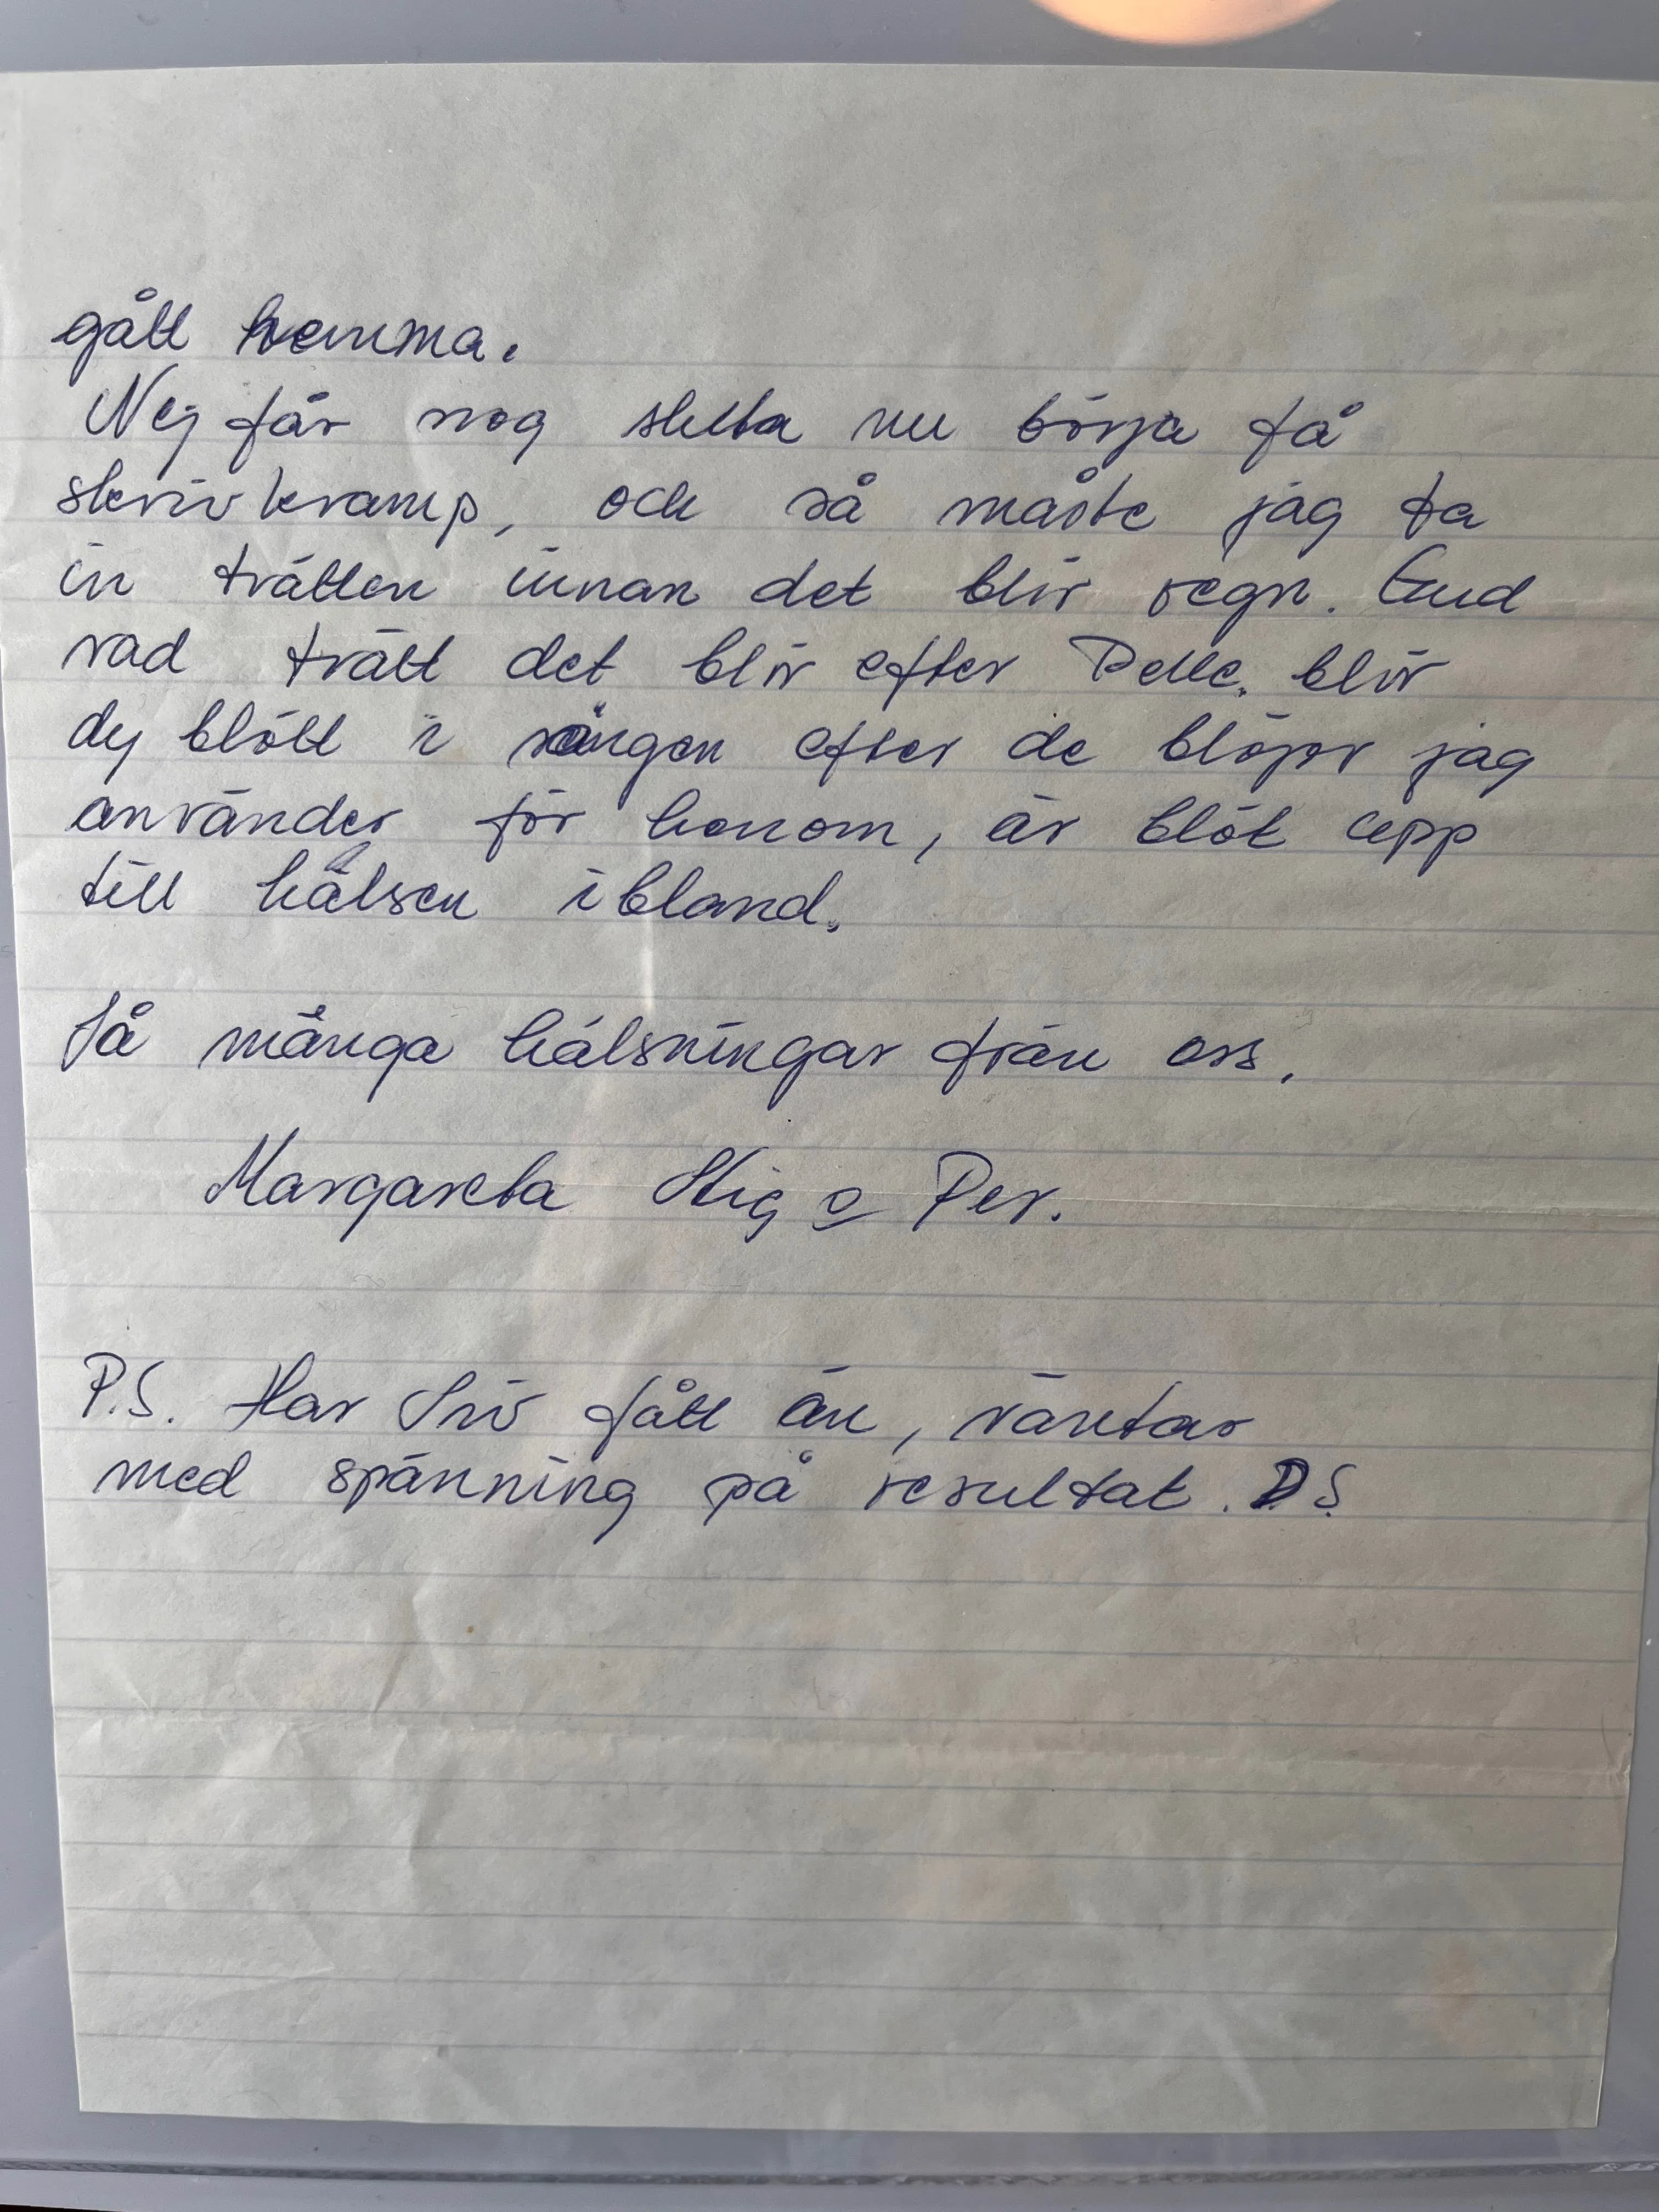 gått hemma.
Nej får nog sluta nu börja få
skrivkramp, och så måste jag ta
in tvätten innan det blir regn. Gud
vad tvätt det blir efter Pelle. blir
dy blött i sängen efter de blöjor jag
använder för honom, är blöt upp
till halsen ibland.
Så många hälsningar från oss.
Margareta Stig o Per.
P.S. Har Siv fått än, väntar
med spänning på resultat. D.S.